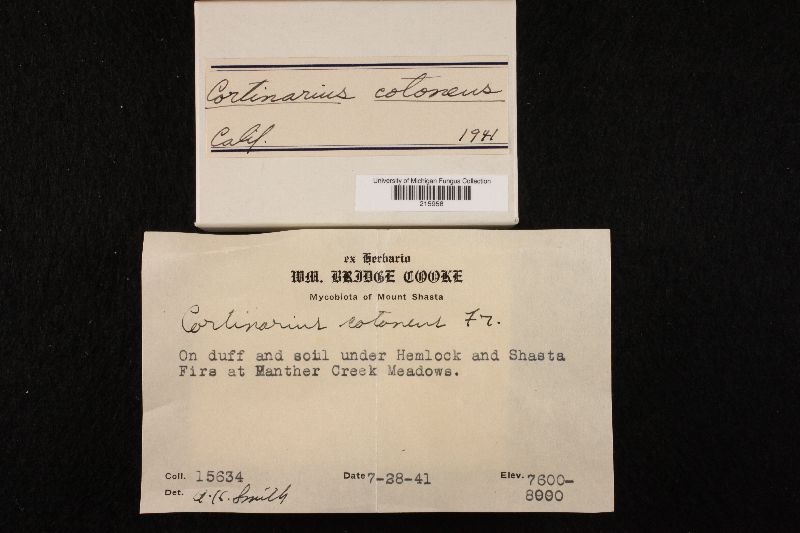 Cortinarius cotoneus
Calif. 1941
University of Michigan Fungus Collection
215958
ex Herbario
WM. BRIDGE COOKE
Mycobiota of Mount Shasta
Cortinarius cotoneus Fr.
On duff and soill under Hemlock and Shasta
Firs at Manther Creek Meadows.
Coll. 15634 Date 7-28-41 Elev. 7600-
8000
Det. A.H. Smith